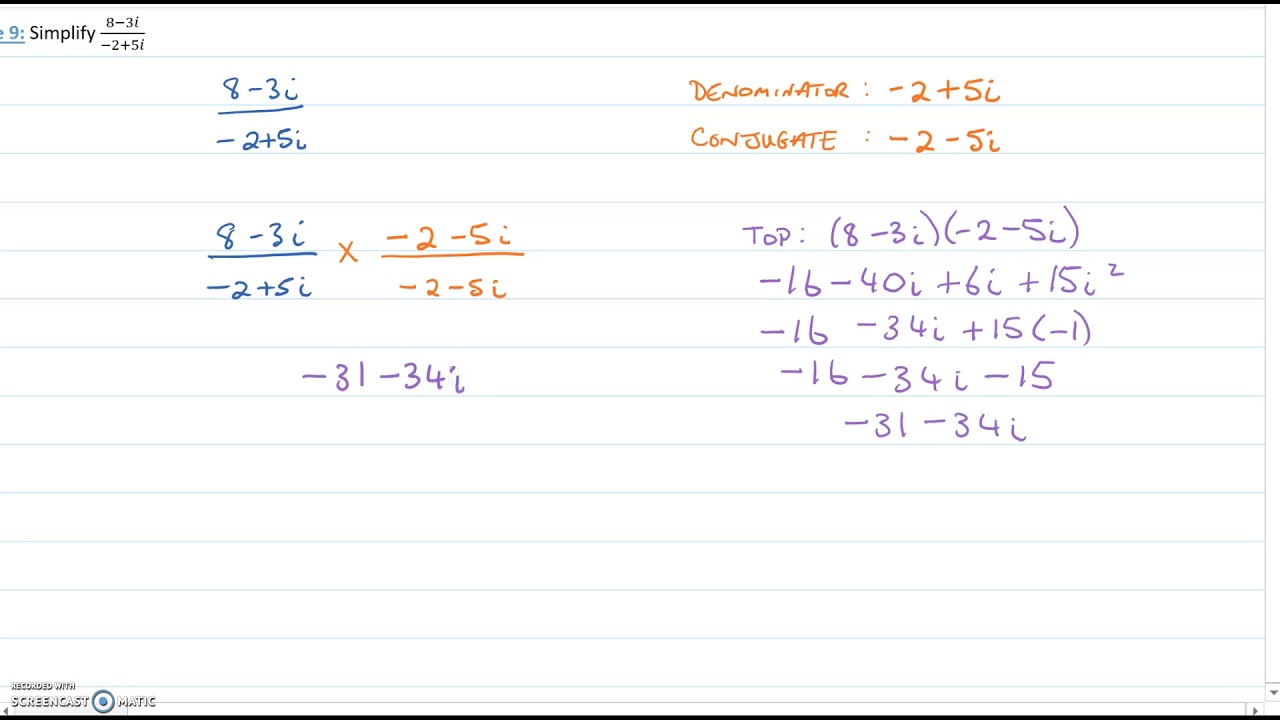 e 9: Simplify 8−3i/−2+5i
8 - 3i
- 2+5i
DENOMINATOR : - 2 + 5i
CONJUGATE : - 2 - 5i
8 - 3i × - 2 - 5i
- 2+5i - 2 - 5i
TOP: (8 - 3i)(- 2 - 5i)
- 16 - 40i + 6i + 15i²
- 16 - 34i + 15(-1)
- 16 - 34i - 15
- 31 - 34i
- 31 - 34i
RECORDED WITH
SCREENCAST MATIC